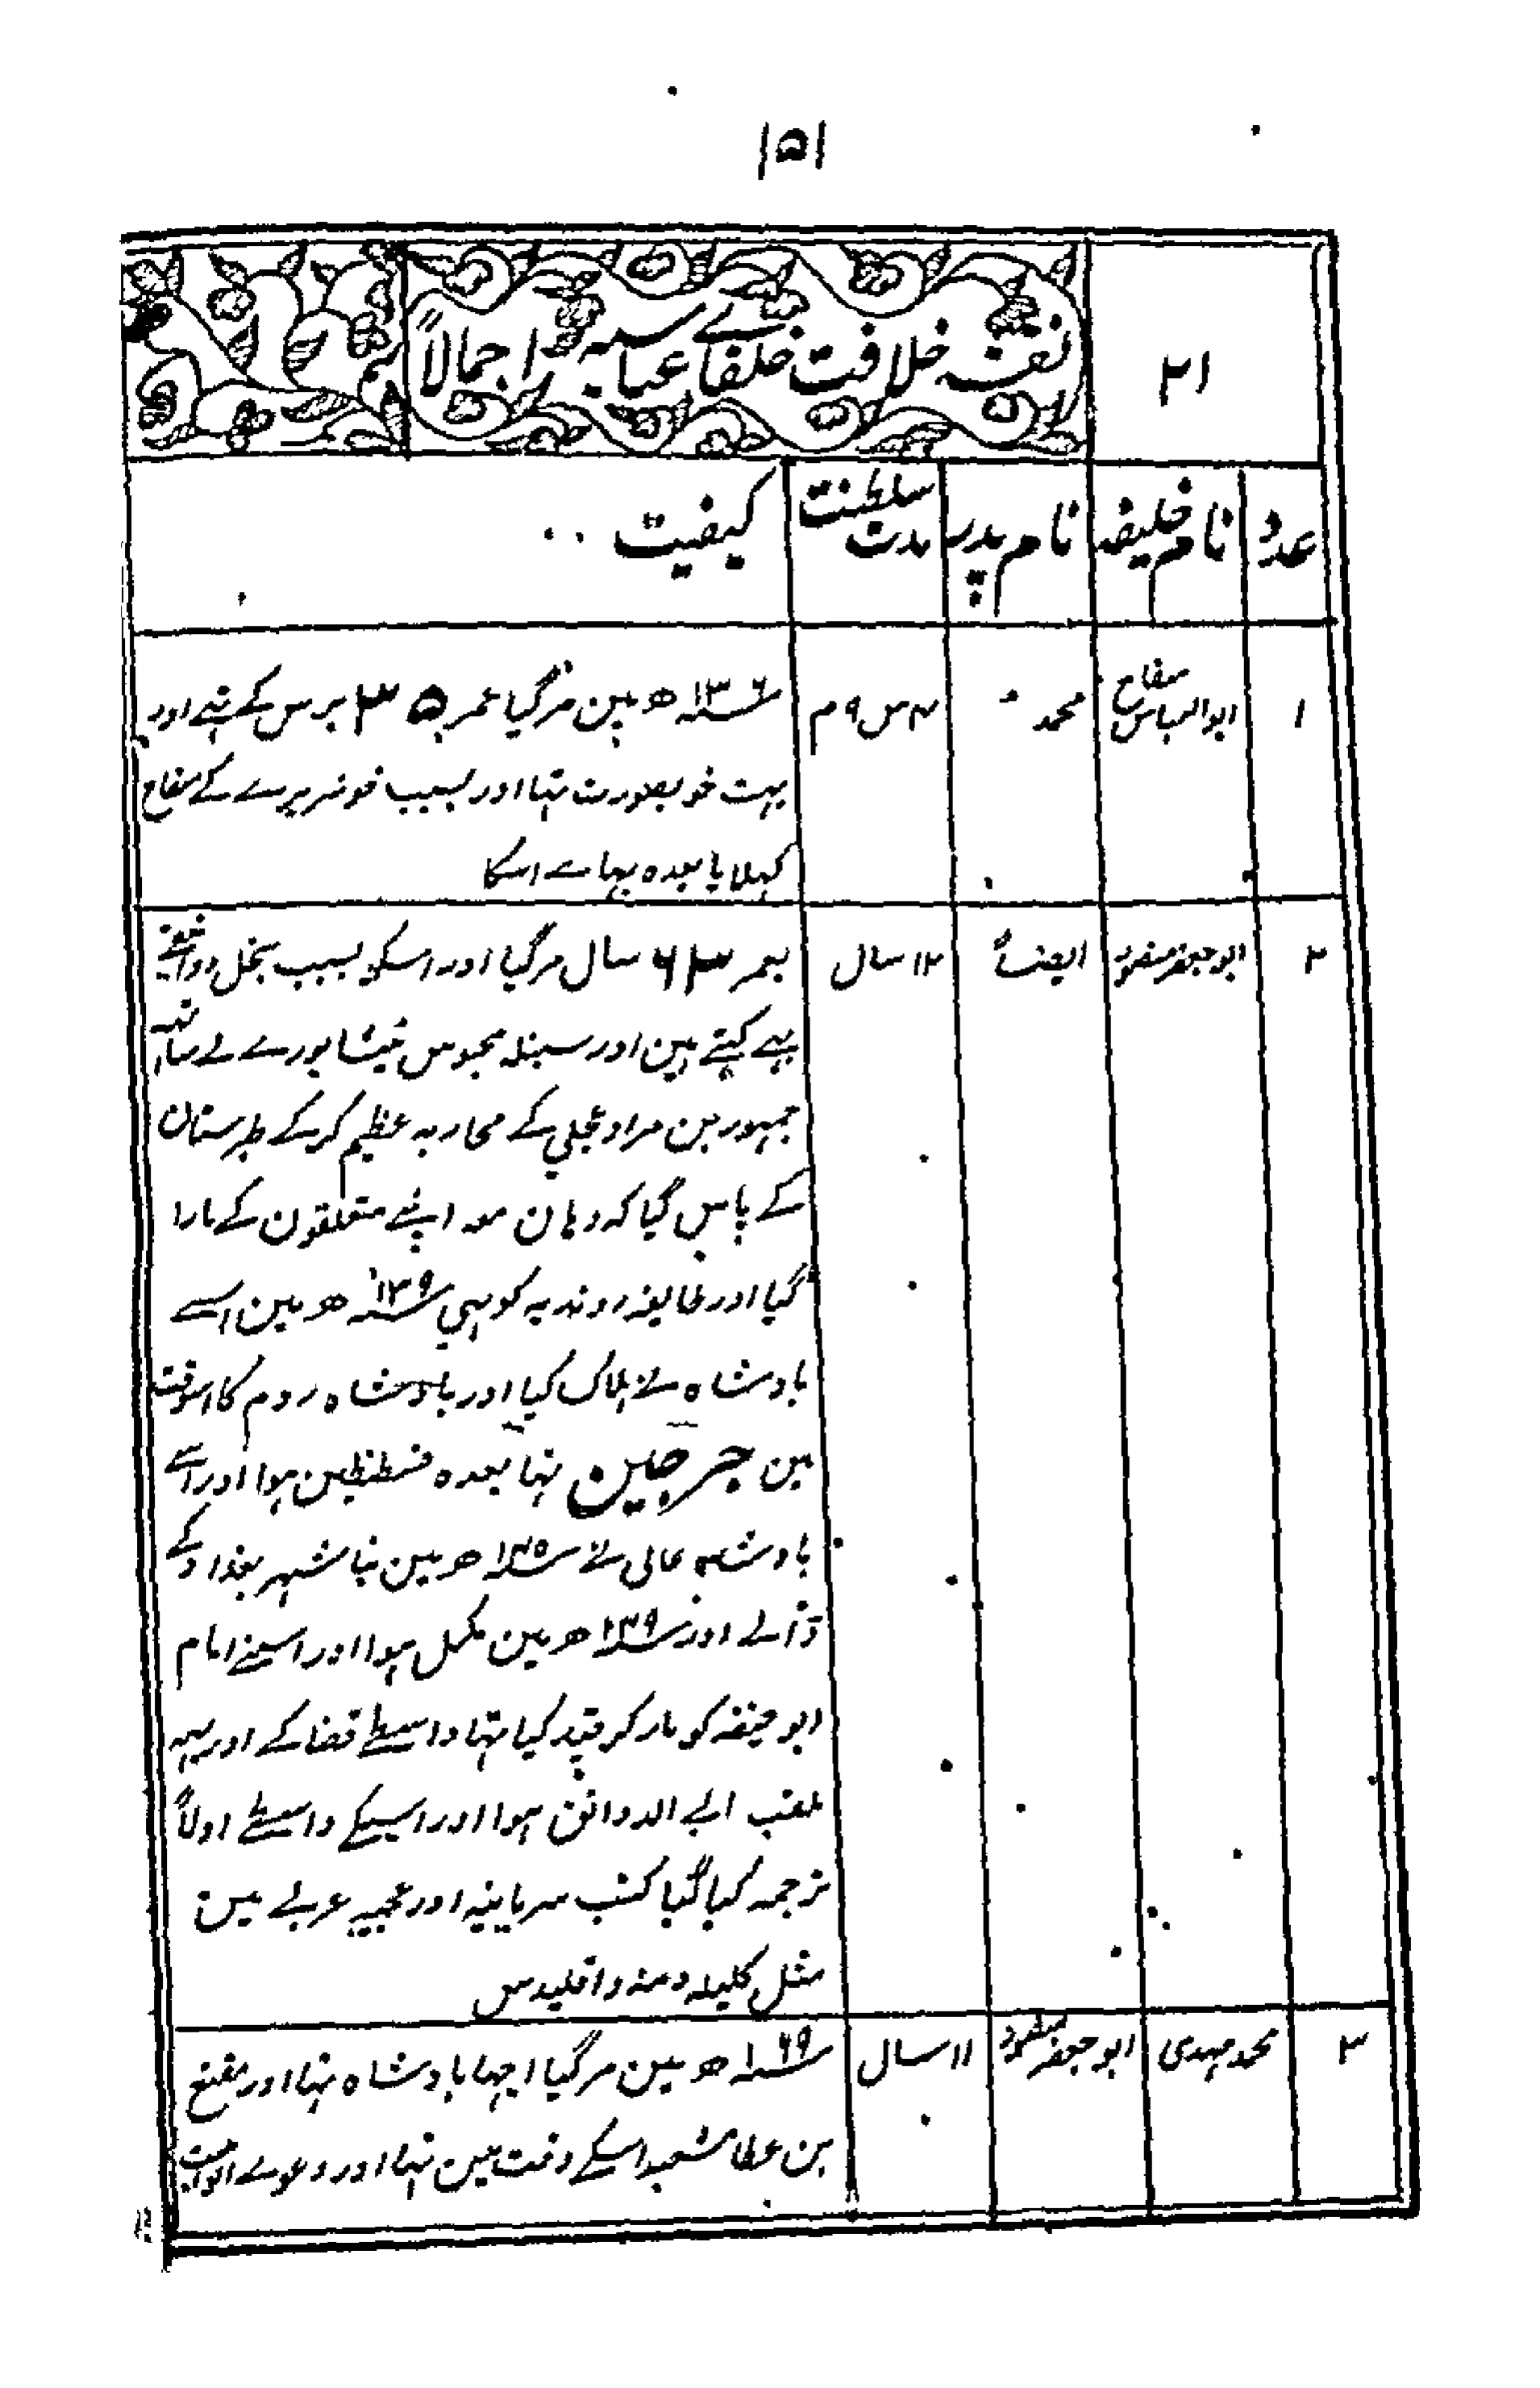 ۱۵۱
۲۱
نقشہ خلافت خلفاے عباسیہ اجمالاً
عدد نام خلیفہ نام پدر مدت سلطنت کیفیت
۱ ابوالعباس سفاح محمد ۴ س ۹ م سنہ ۱۳۶ ھ مین مرگیا عمر ۳۵ برس کے تہے اور
بہت خوبصورت تہا اور بسبب خونریزے کے سفاح
کہلایا بعدہ بہاے اسکا
۲ ابوجعفر منصور ایضاً سال بعمر ۶۳ سال مرگیا اور اسکو بسبب بخل دوانقے
بہے کہتے ہین اور سنبلہ مجوس نیشاپورے نے ساتہ
جمہور بن مراد عجلی کے محاربہ عظیم کرکے طبرستان
کے پاس گیا کہ وہان معہ اپنے متعلقون کے مارا
گیا اور طایفہ روندیہ کو بہی سنہ ۱۳۹ ھ مین اسے
بادشاہ نے ہلاک کیا اور بادشاہ روم کا اسوقت
مین جرجین تہا بعدہ قسطنطین ہوا اور اسے
بادشاہ عالی نے سنہ ھ مین بنا شہر بغداد کے
ڈالے اور سنہ ھ مین مکمل ہوا اور اسینے امام
ابو حنیفہ کو مار کر قید کیا تہا واسطے قضا کے اور یہہ
ملقب ابے الدوانق ہوا اور اسیکے واسطے اولاً
ترجمہ کیا گیا کتب سریانیہ اور عجمیہ عربے مین
مثل کلیلہ دمنہ و اقلیدس
۳ محمد مہدی ابوجعفر منصور ۱۱ سال سنہ ۱۶۹ ھ مین مرگیا اچہا بادشاہ تہا اور مقنع
بن عطا اسکے وقت مین تہا اور دعوے الوہیت